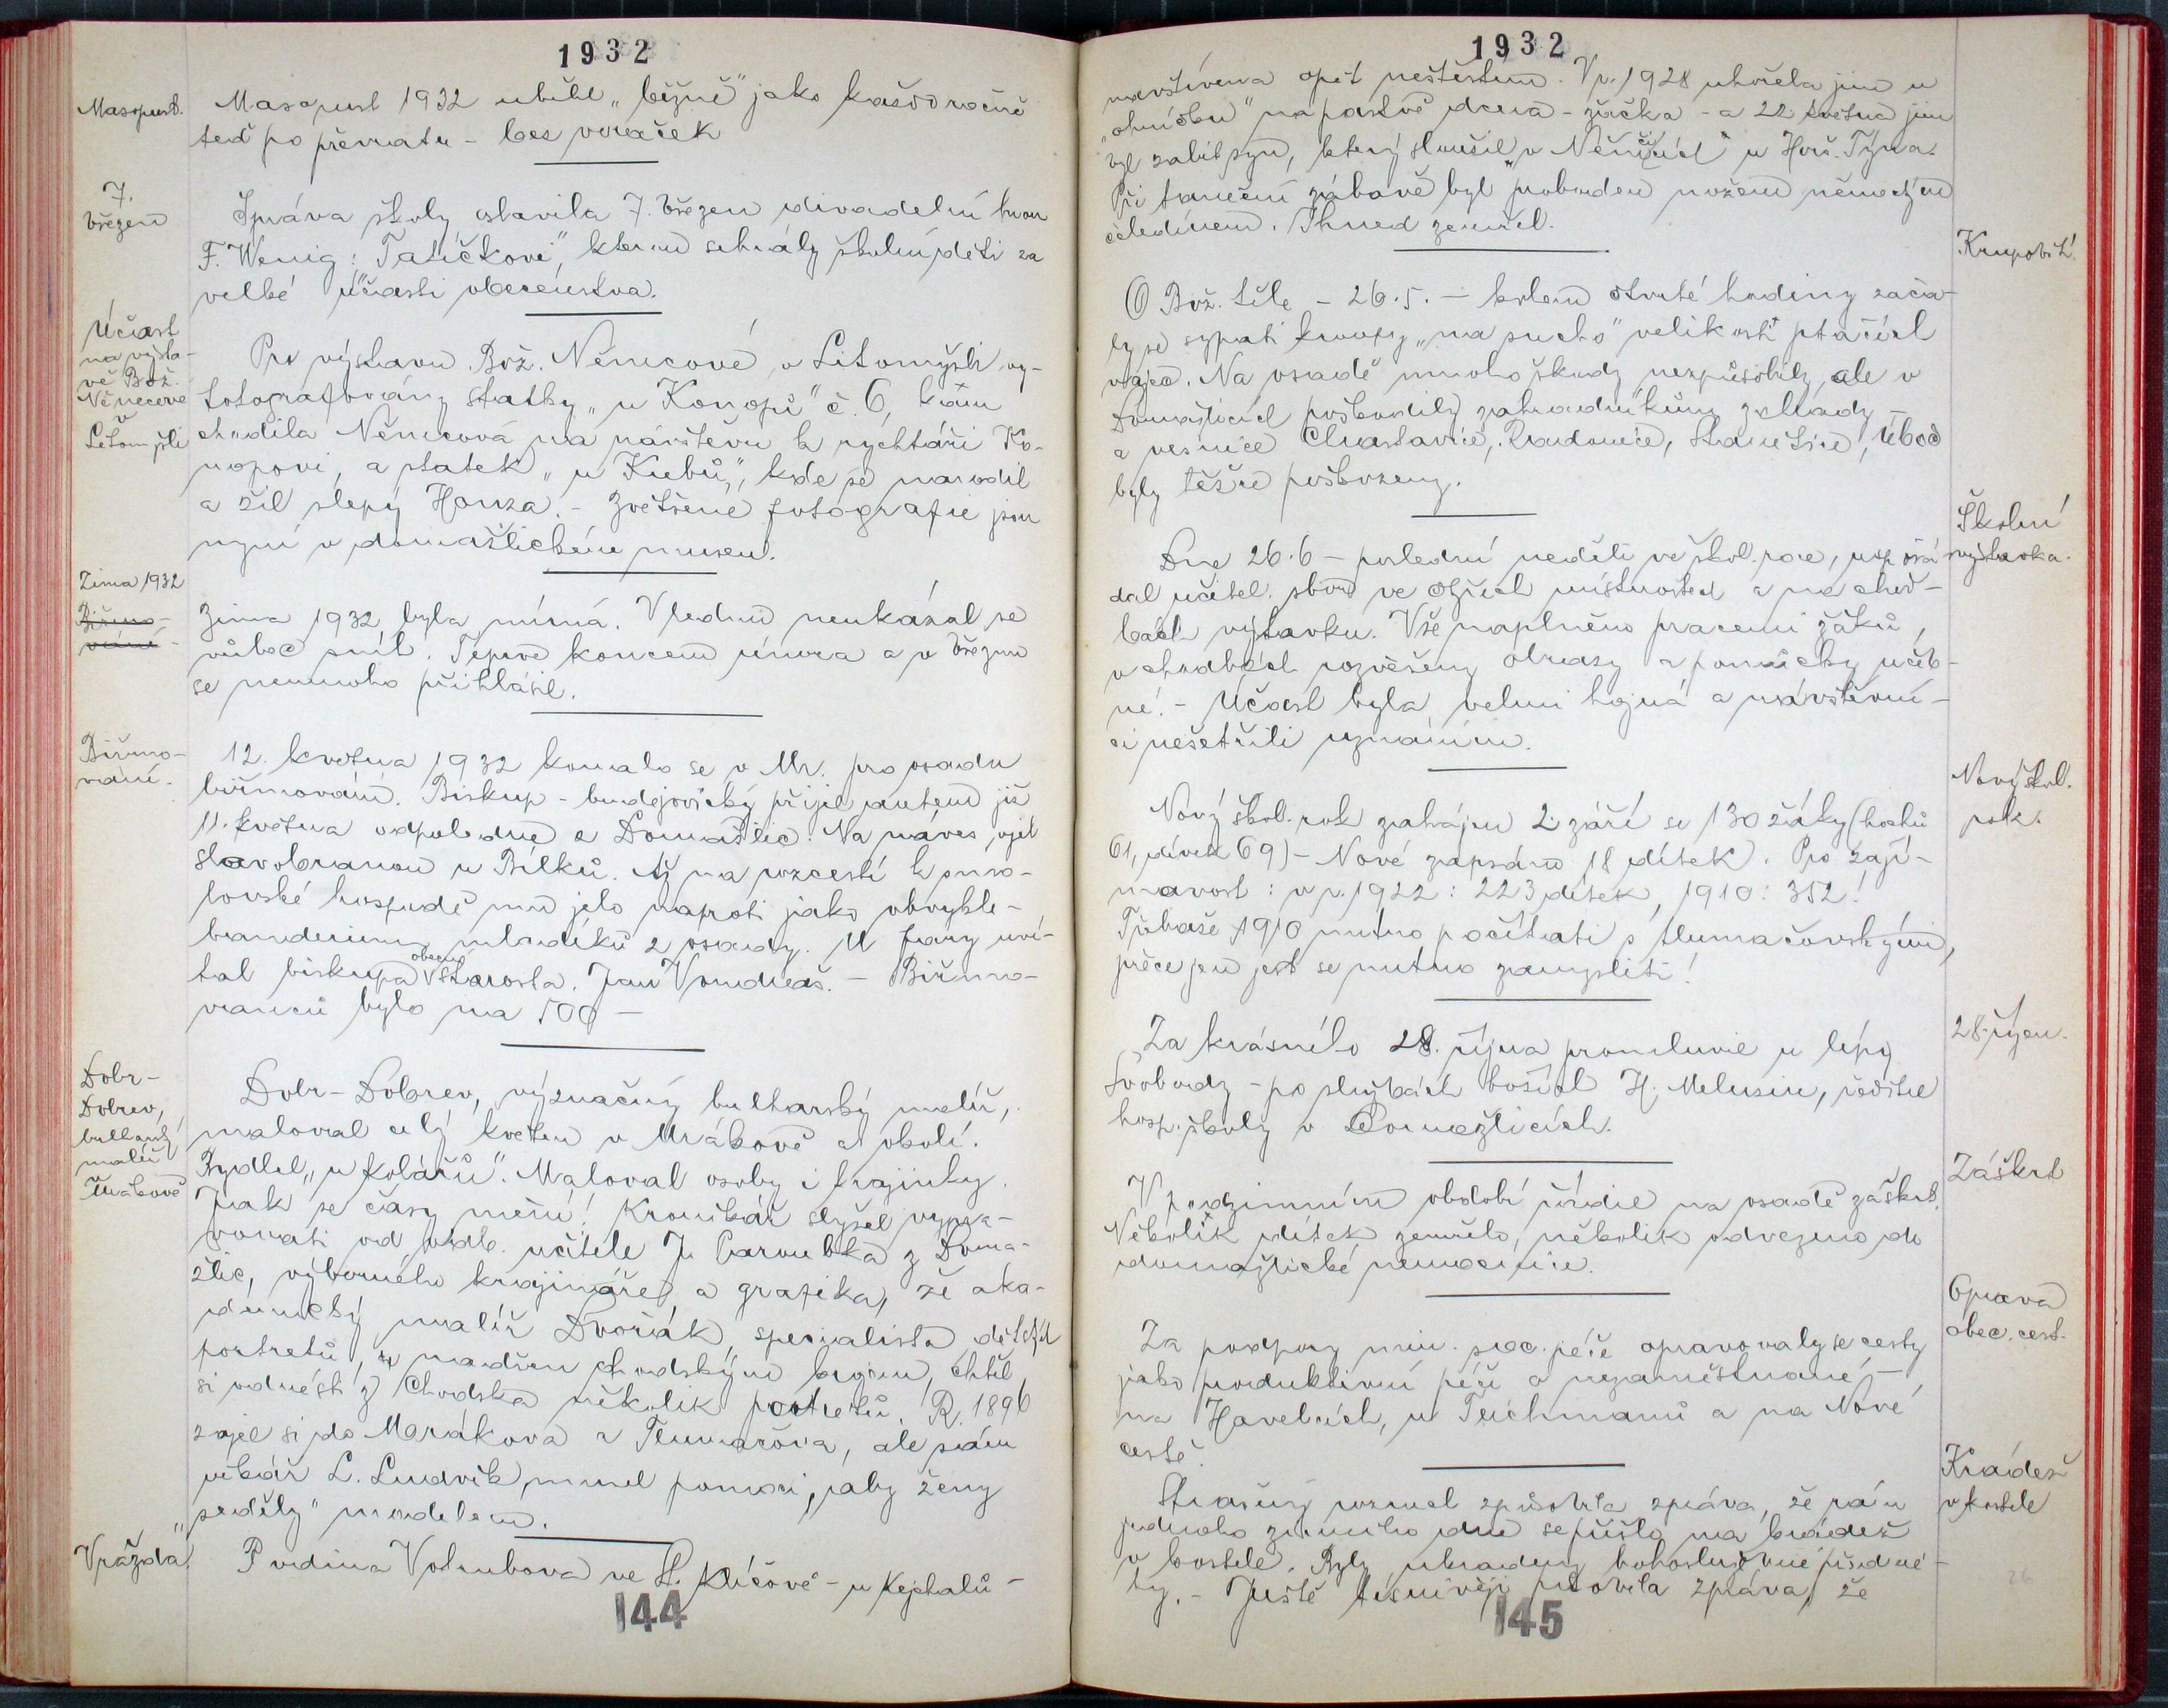 1932
Masopust.
Masopust 1932 uběhl „běžně" jako každoročně
teď po převratu – bez voraček
7.
březen
Správa školy oslavila 7. březen divadelní hrou
F. Wenig: „Tatíčkovi", kterou sehrály školní děti za
velké účasti obecenstva.
Účast
na výsta-
vě Bož.
Němcové
v
Litomyšli
Pro výstavu Bož. Němcové v Litomyšli vy-
fotografovány statky „u Konopů" č. 6, kam
chodila Němcová na návštěvu k rychtáři Ko-
nopovi, a statek „u Kubů", kde se narodil
a žil slepý Honza. – Zvětšené fotografie jsou
nyní v domažlickém museu.
Zima 1932
Biřmo-
vání –
Zima 1932 byla mírná. V lednu neukázal se
vůbec sníh. Teprve koncem února a v březnu
se nemnoho přihlásil.
Biřmo-
vání.
12. května 1932 konalo se v Mr. pro osadu
biřmování. Biskup – budějovický přijel autem již
11. května odpoledne z Domažlic. Na náves vjel
slavobranou u Bílků. Až na rozcestí k
hospodě mu jelo naproti jako obvykle –
banderium mladíků z osady. U fary uví-
tal biskupa obecní starosta Jan Vondraš. – Biřmo-
vanců bylo na 500 –
Dobr-
Dobrev,
bulharský
malíř
v Mrákově
Dobr-Dobrev, význačný bulharský malíř,
maloval celý květen v Mrákově a okolí.
Bydlel „u Kolářů". Maloval osoby i krajinky.
Jak se časy mění! Kronikář slyšel vypra-
vovati od odb. učitele J. Paroubka z Doma-
žlic, výborného krajináře a grafika, že aka-
demický malíř Dvořák, specialista dětských
portretů, nadšen chodským krojem, chtěl
si odnésti z Chodska několik portretů. R. 1896
zajel si do Mrákova a Tlumačova, ale sám
vikář L. Ludvík musel pomoci, aby ženy
„seděly" modelem.
Vražda.
Rodina Volmbova ve St. Klíčově – u Kejhalů –
144
1932
navštívena opět neštěstím. V r. 1928 uhořela jim u
„ohníčku" na pastvě dcera – žačka – a 22. května jim
byl zabit syn, který sloužil v Němčicích u Horš. Týna.
Při taneční zábavě byl proboden nožem německým
čeledínem. Ihned zemřel.
Krupobití.
O Bož. těle – 26.5. – kolem čtvrté hodiny zača-
ly se sypati kroupy „na sucho" velikosti ptačích
vajec. Na osadě mnoho škody nezpůsobily, ale v
Domažlicích poškodily zahradníkům zahrady –
a vesnice Chrastavice, Radonice, Stanětice, Úboč
byly těžce poškozeny.
Školní
výstavka.
Dne 26.6 – poslední neděli ve škol. roce, uspořá-
dal učitel. sbor ve všech místnostech a na chod-
bách výstavku. Vše naplněno pracemi žáků,
v chodbách rozvěšeny obrazy a pomůcky učeb-
né. – Účast byla velmi hojná a návštěvní-
ci nešetřili uznáním.
Nový škol.
rok.
Nový škol. rok zahájen 2. září se 130 žáky (hochů
61, dívek 69) – Nově zapsáno 18 dítek. Pro zají-
mavost: v r. 1922: 223 dítek, 1910: 352!
Třebaže 1910 nutno počítati s tlumačovskými,
přece jen jest se nutno zamysliti!
28. říjen.
Za krásného 28. října promluvil u lípy
Svobody – po službách božích H. Melusin, ředitel
hosp. školy v Domažlicích.
Záškrt
V podzimním období řádil na osadě záškrt.
Několik dítek zemřelo, několik odvezeno do
domažlické nemocnice.
Oprava
obec. cest.
Za podpory min. soc. péče opravovaly se cesty
jako produktivní péči o nezaměstnané –
na Havelcích, u Teichmanů a na Nové
cestě.
Krádež
v kostele
Strašný rozruch způsobila zpráva, že ráno
jednoho zimního dne se přišlo na krádež
v kostele. Byly ukradeny bohoslužebné předmě-
ty. – Ještě tísnivěji působila zpráva, že
26
145